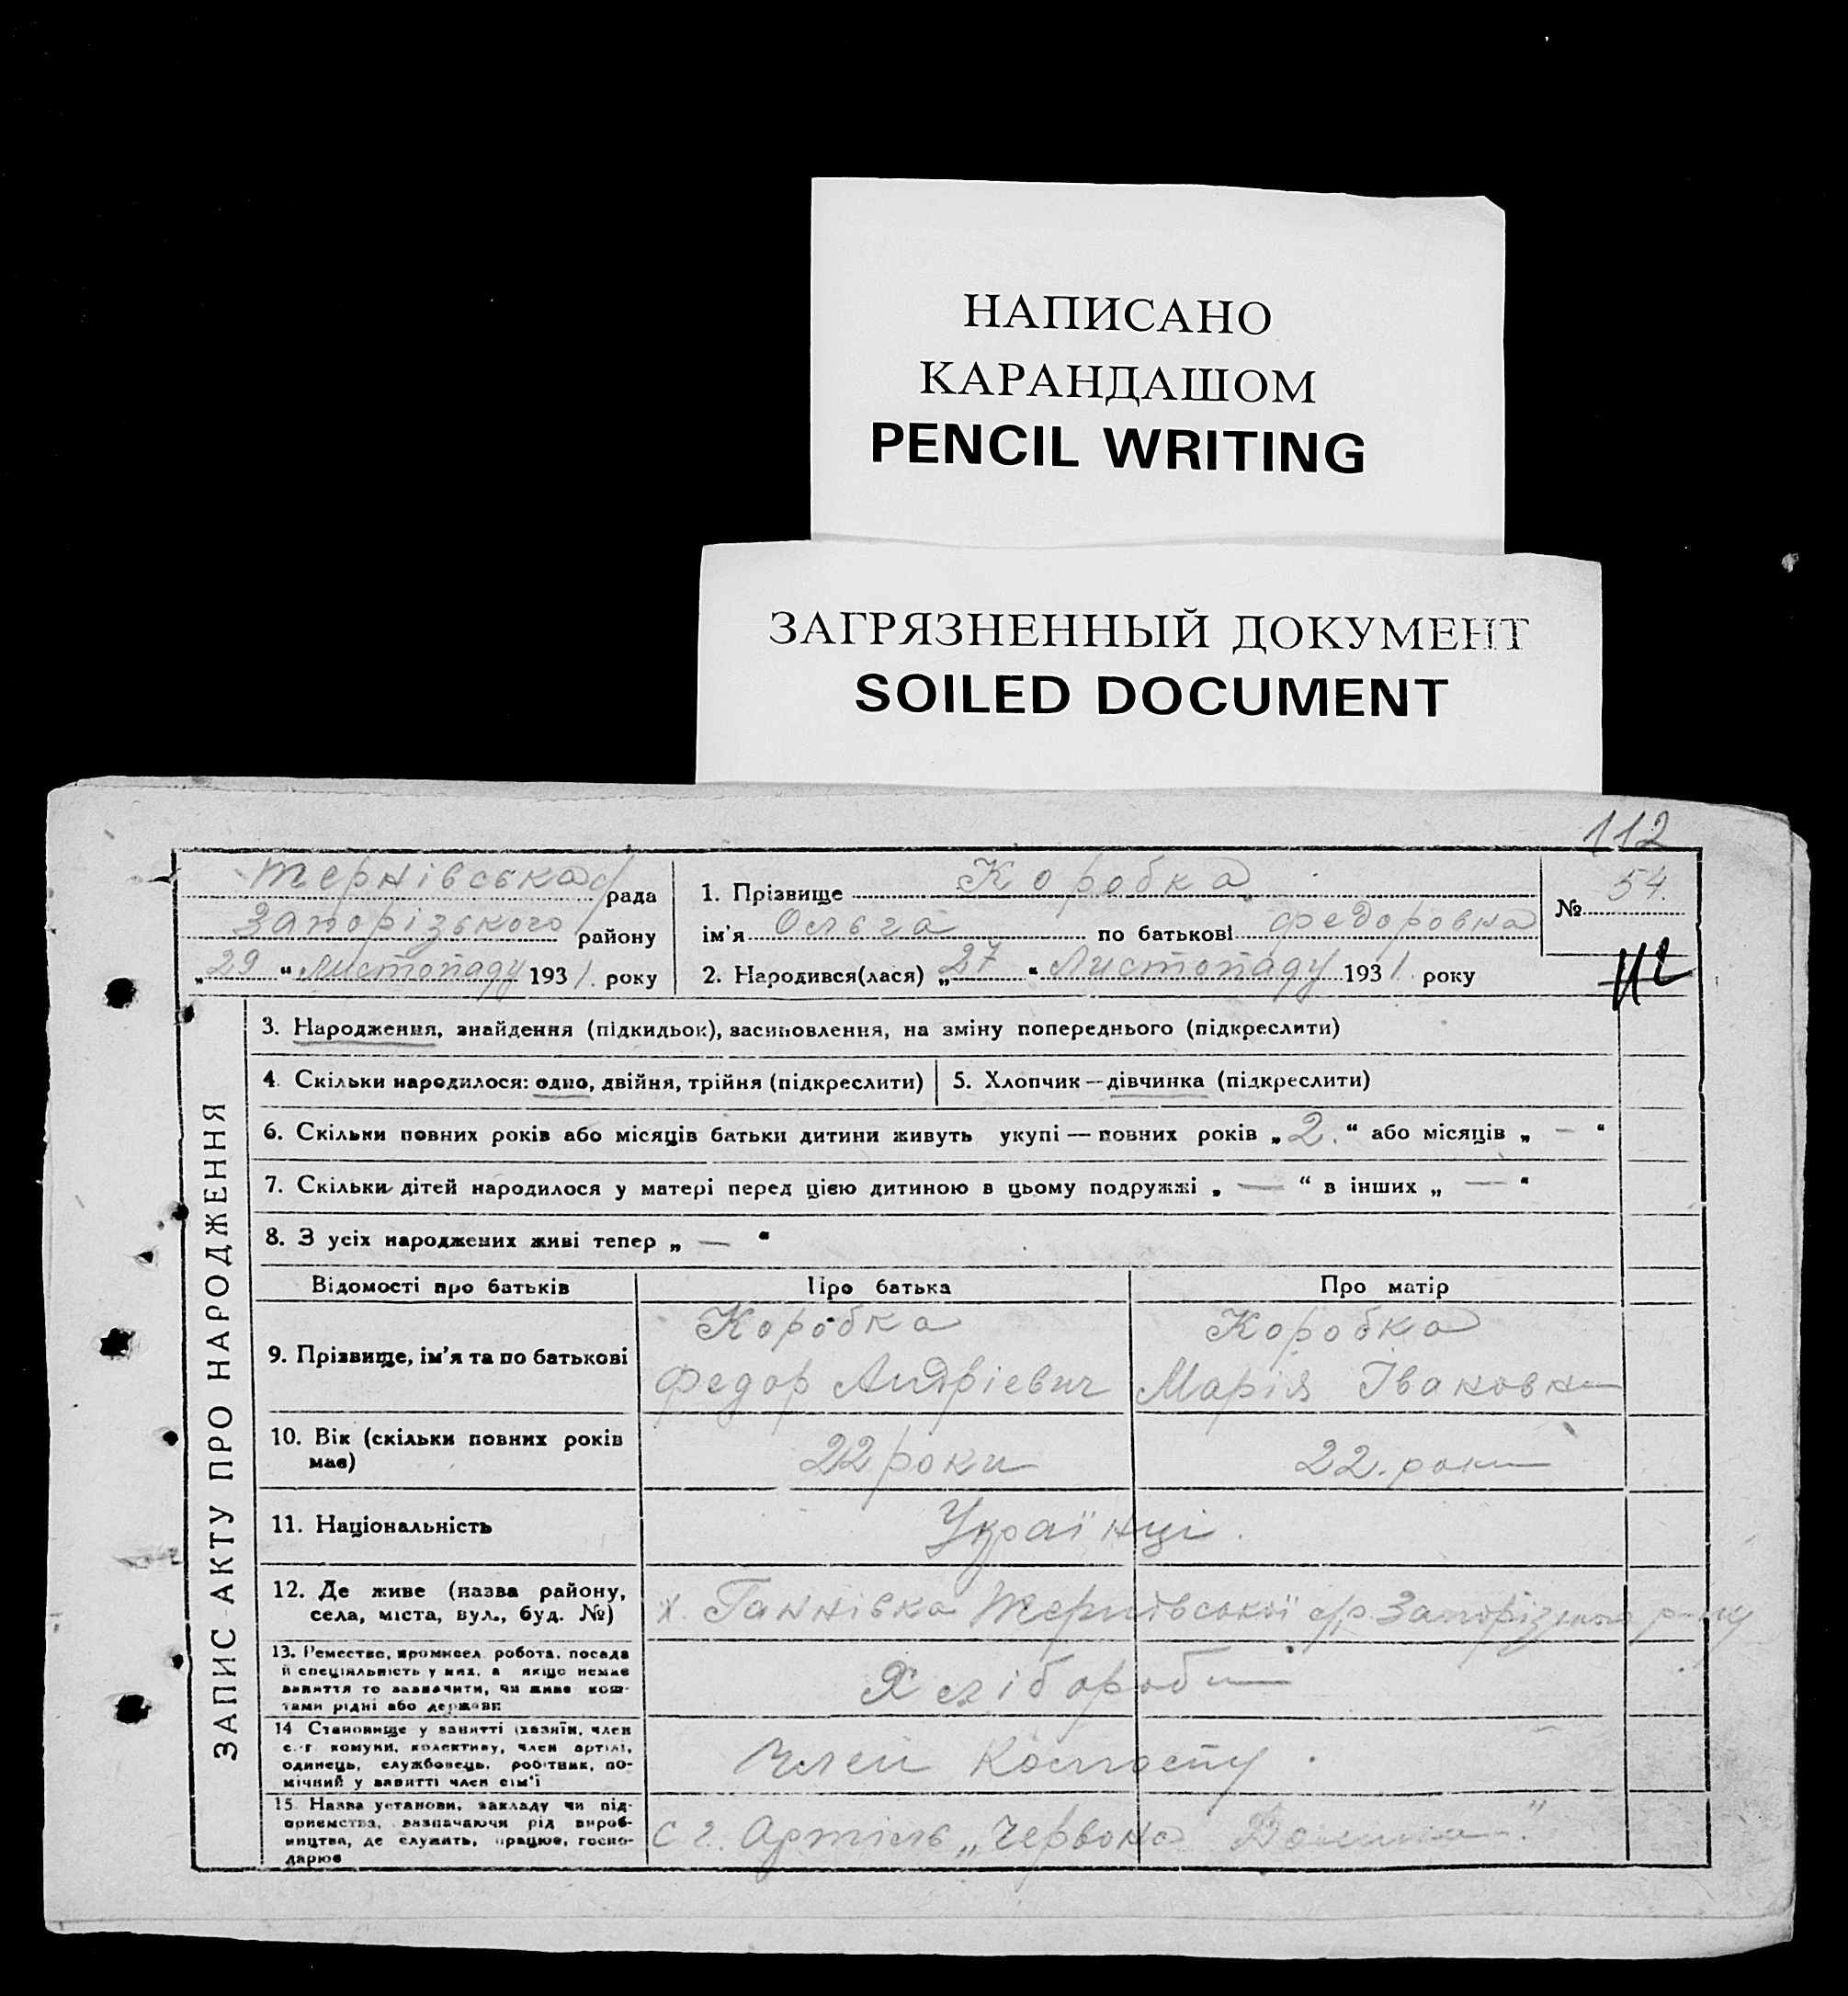 НАПИСАНО
КАРАНДАШОМ
PENCIL WRITING
ЗАГРЯЗНЕННЫЙ ДОКУМЕНТ
SOILED DOCUMENT
112
Тернівська с/рада
Запорізького району
„29“ Листопаду 1931. року
1. Прізвище Коробка
ім'я Ольга по батькові Федоровна
2. Народився(лася) „27“ Листопаду 1931. року
№ 54.
112
ЗАПИС АКТУ ПРО НАРОДЖЕННЯ
3. Народження, знайдення (підкидьок), засиновлення, на зміну попереднього (підкреслити)
4. Скільки народилося: одно, двійня, трійня (підкреслити) 5. Хлопчик—дівчинка (підкреслити)
6. Скільки повних років або місяців батьки дитини живуть укупі — повних років „2.“ або місяців „—“
7. Скільки дітей народилося у матері перед цією дитиною в цьому подружжі „—“ в інших „—“
8. З усіх народжених живі тепер „—“
Відомості про батьків Про батька Про матір
9. Прізвище, ім'я та по батькові
Коробка
Федор Андрієвич
Коробка
Марія Івановна
10. Вік (скільки повних років
має)
22 роки
22. роки
11. Національність
Українці.
12. Де живе (назва району,
села, міста, вул., буд. №)
х. Ганнівка Тернівської с/р. Запорізького р-ну
13. Ремество, промисел, робота, посада
й спеціяльність у них, а якщо немає
заняття то зазначити, чи живе кош-
тами рідні або держави
Хлібороби
14. Становище у занятті (хазяїн, член
с.-г. комуни, колективу, член артілі,
одинець, службовець, робітник, по-
мічний у занятті член сім'ї
Член Колгоспу.
15. Назва установи, закладу чи під-
приємства, зазначаючи рід вироб-
ництва, де служить, працює, госпо-
дарює
С. г. Артіль „Червона Долина."